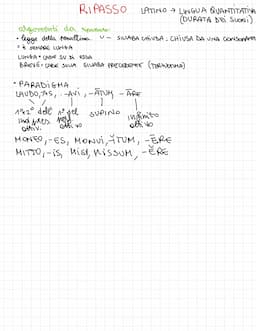 RIPASSO
LATINO → LINGUA QUANTITATIVA
(DURATA DEI SUONI)
argomenti da
• legge della penultima U — SILLABA CHIUSA: CHIUSA DA UNA CONSONANTE
• È SEMPRE LUNGA
LUNGA → CADE SU DI ESSA
BREVE → CADE SULLA SILLABA PRECEDENTE (TERZULTIMA)
• PARADIGMA
LAUDO, -AS, -AVI, -ĀTUM, -ĀRE
1ª e 2ª dell' ind pres attivo.
1ª del perf attivo
SUPINO
infinito attivo
MONEO, -ES, MONUI, ĬTUM, -ĒRE
MITTO, -IS, MISI, MISSUM, -ĔRE